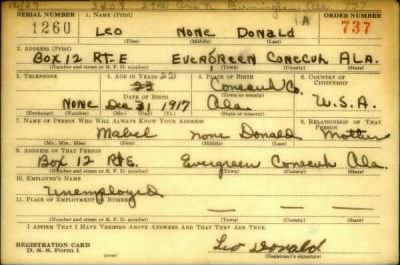 SERIAL NUMBER 1. NAME (Print) ORDER NUMBER
1260 Leo None Donald 1A 737
(First) (Middle) (Last)
2. ADDRESS (Print)
Box 12 Rt-E Evergreen Conecuh Ala.
(Number and street or R. F. D. number) (Town) (County) (State)
3. TELEPHONE 4. AGE IN YEARS 5. PLACE OF BIRTH 6. COUNTRY OF CITIZENSHIP
22
23 Conecuh Co.
DATE OF BIRTH (Town or county)
None Dec 31, 1917 Ala U.S.A.
(Exchange) (Number) (Mo.) (Day) (Yr.) (State or country)
7. NAME OF PERSON WHO WILL ALWAYS KNOW YOUR ADDRESS 8. RELATIONSHIP OF THAT PERSON
Mabel none Donald Mother
(Mr., Mrs., Miss) (First) (Middle) (Last)
9. ADDRESS OF THAT PERSON
Box 12 Rt E. Evergreen Conecuh Ala.
(Number and street or R. F. D. number) (Town) (County) (State)
10. EMPLOYER'S NAME
Unemployed
11. PLACE OF EMPLOYMENT OR BUSINESS
(Number and street or R. F. D. number) (Town) (County) (State)
I AFFIRM THAT I HAVE VERIFIED ABOVE ANSWERS AND THAT THEY ARE TRUE.
REGISTRATION CARD
D. S. S. Form 1 Leo Donald
(Registrant's signature)